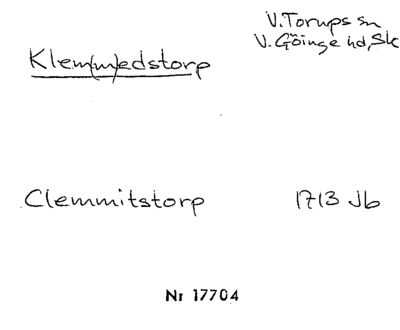 V. Torups sn
V. Göinge hd, Sk
Klem(m)edstorp
Clemmitstorp 1713 Jb
Nr 17704